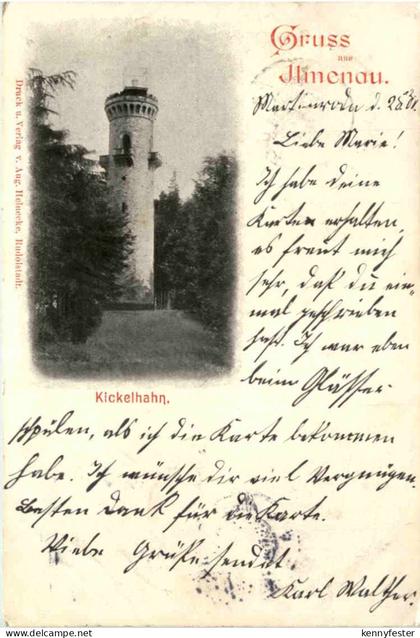 Gruss
aus
Ilmenau.
Druck u. Verlag v. Aug. Heinecke, Rudolstadt.
Kickelhahn.
Martinroda d.
Liebe Marie!
Ich habe deine
Karten erhalten,
es freut mich
sehr, daß du ein-
mal geschrieben
hast. Ich war eben
beim Gläser
spülen, als ich die Karte bekommen
habe. Ich wünsche dir viel Vergnügen.
Besten Dank für die Karte.
Viele Grüße sendet
Karl Walther.
www.delcampe.net
kennyfester